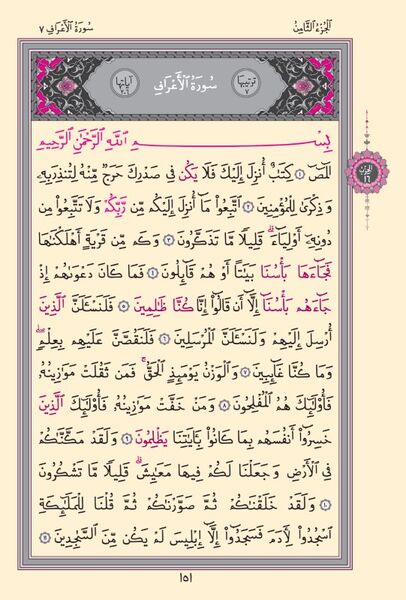 الجزء الثامن
سورة الأعراف ٧
ترتيبها ٧
سُورَةُ الْأَعْرَافِ
آياتها ٢٠٦
بِسْمِ اللَّهِ الرَّحْمَٰنِ الرَّحِيمِ
الٓمٓصٓ ١ كِتَٰبٌ أُنزِلَ إِلَيْكَ فَلَا يَكُن فِى صَدْرِكَ حَرَجٌ مِّنْهُ لِتُنذِرَ بِهِۦ
وَذِكْرَىٰ لِلْمُؤْمِنِينَ ٢ ٱتَّبِعُوا۟ مَآ أُنزِلَ إِلَيْكُم مِّن رَّبِّكُمْ وَلَا تَتَّبِعُوا۟ مِن
دُونِهِۦٓ أَوْلِيَآءَ ۗ قَلِيلًا مَّا تَذَكَّرُونَ ٣ وَكَم مِّن قَرْيَةٍ أَهْلَكْنَٰهَا
فَجَآءَهَا بَأْسُنَا بَيَٰتًا أَوْ هُمْ قَآئِلُونَ ٤ فَمَا كَانَ دَعْوَىٰهُمْ إِذْ
جَآءَهُم بَأْسُنَآ إِلَّآ أَن قَالُوٓا۟ إِنَّا كُنَّا ظَٰلِمِينَ ٥ فَلَنَسْـَٔلَنَّ ٱلَّذِينَ
أُرْسِلَ إِلَيْهِمْ وَلَنَسْـَٔلَنَّ ٱلْمُرْسَلِينَ ٦ فَلَنَقُصَّنَّ عَلَيْهِم بِعِلْمٍ ۖ
وَمَا كُنَّا غَآئِبِينَ ٧ وَٱلْوَزْنُ يَوْمَئِذٍ ٱلْحَقُّ ۚ فَمَن ثَقُلَتْ مَوَٰزِينُهُۥ
فَأُو۟لَٰٓئِكَ هُمُ ٱلْمُفْلِحُونَ ٨ وَمَنْ خَفَّتْ مَوَٰزِينُهُۥ فَأُو۟لَٰٓئِكَ ٱلَّذِينَ
خَسِرُوٓا۟ أَنفُسَهُم بِمَا كَانُوا۟ بِـَٔايَٰتِنَا يَظْلِمُونَ ٩ وَلَقَدْ مَكَّنَّٰكُمْ
فِى ٱلْأَرْضِ وَجَعَلْنَا لَكُمْ فِيهَا مَعَٰيِشَ ۗ قَلِيلًا مَّا تَشْكُرُونَ
١٠ وَلَقَدْ خَلَقْنَٰكُمْ ثُمَّ صَوَّرْنَٰكُمْ ثُمَّ قُلْنَا لِلْمَلَٰٓئِكَةِ
ٱسْجُدُوا۟ لِـَٔادَمَ فَسَجَدُوٓا۟ إِلَّآ إِبْلِيسَ لَمْ يَكُن مِّنَ ٱلسَّٰجِدِينَ ١١
الحزب ١٦
١٥١